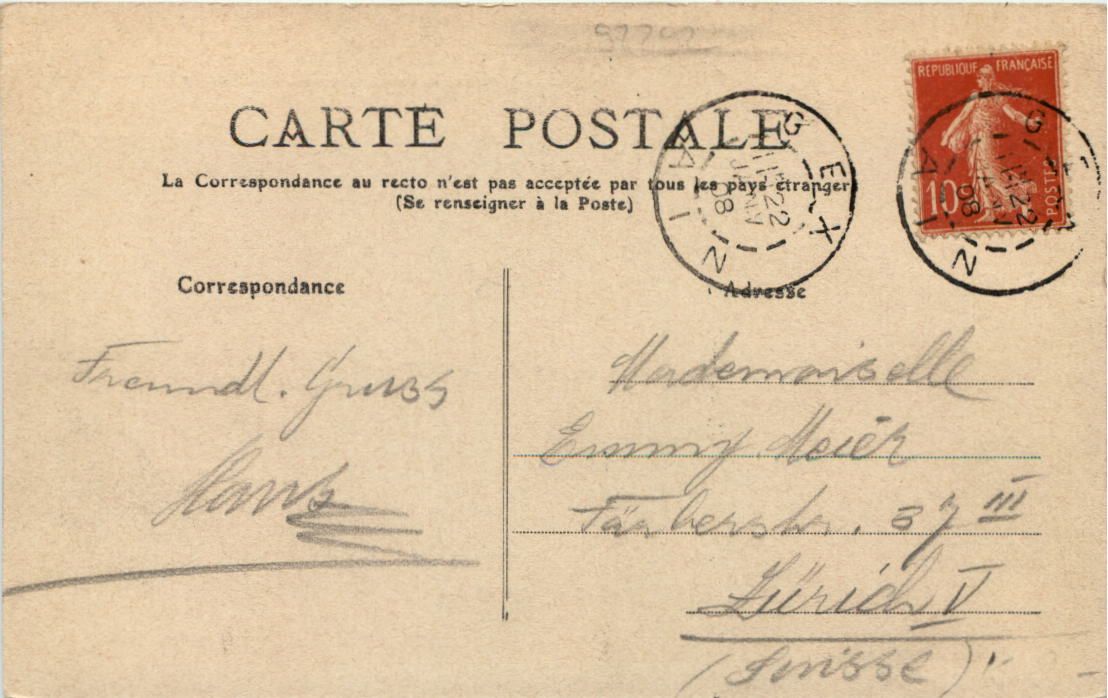 97702
RÉPUBLIQUE FRANÇAISE
10c
POSTES
CARTE POSTALE
GEX
AIN
11 22
JANV
08
GEX
AIN
11 22
08
La Correspondance au recto n'est pas acceptée par tous les pays étranger
(Se renseigner à la Poste)
Correspondance
Freundl. Gruss
Hans
Adresse
Mademoiselle
Emmy Meier
Färberstr. 37 III
Zürich V
(Suisse)